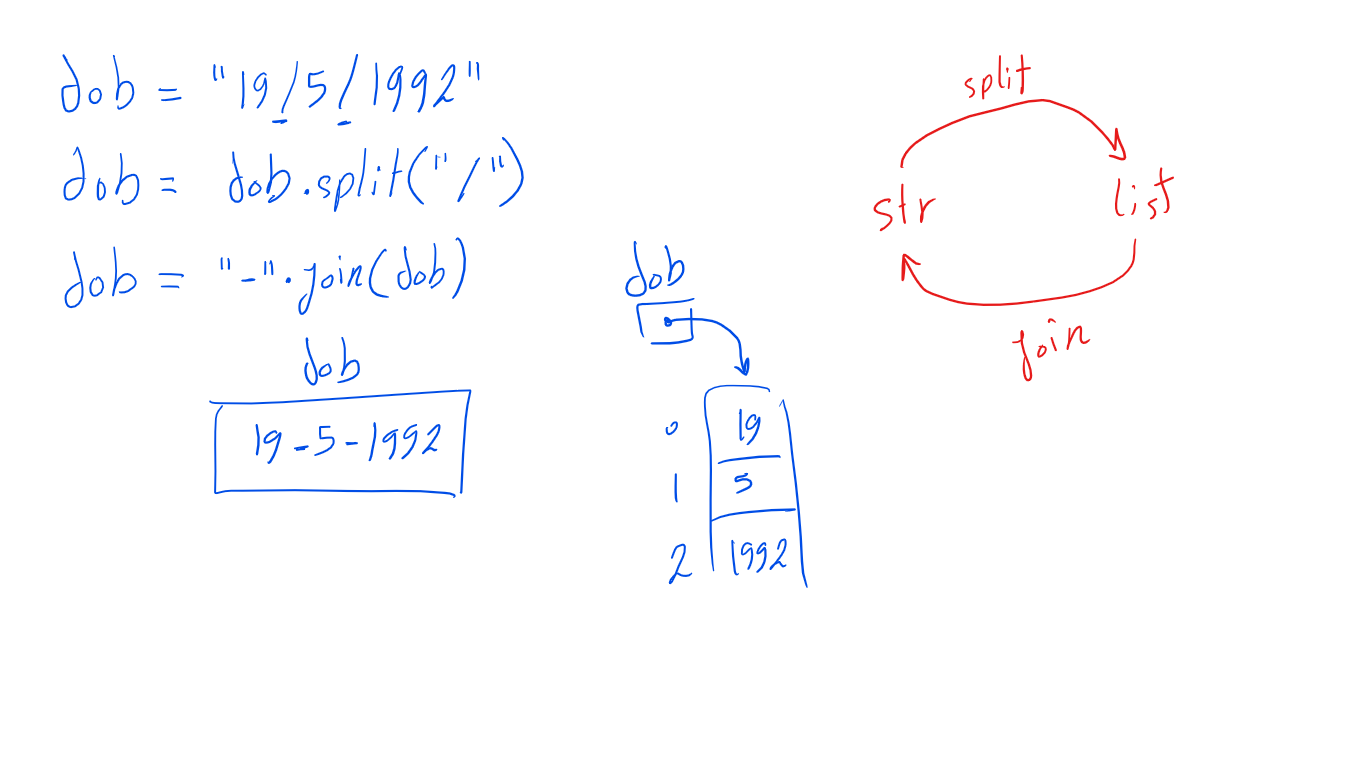 dob = "19/5/1992"
dob = dob.split("/")
dob = "-".join(dob)
dob
19-5-1992
dob
0 19
1 5
2 1992
split
str list
join